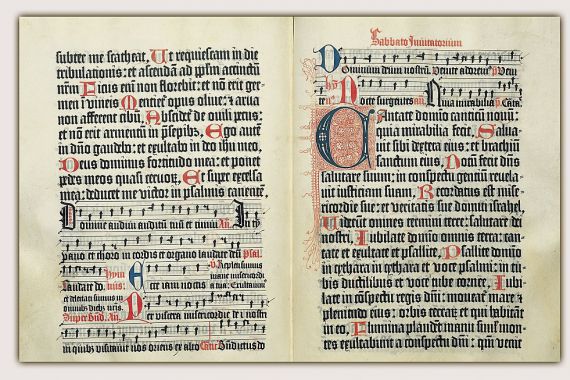 subter me scateat. Ut requiescam in die
tribulationis: et ascendā ad ppl̄m accinctū
nr̄m Ficus em̄ non florebit: et nō erit ger-
men ī vineis Mentiet̄ opus olive: & arva
non afferent cibū. Abscidet̄ de ovili pecus:
et nō erit armentū in p̄sepib9. Ego aut̄
in dn̄o gaudebo: et exultabo in deo ihu meo.
Deus dominus fortitudo mea: et ponet
pedes meos quasi cervoꝝ. Et super excelsa
mea: deducet me victor in psalmis canentē.
Domine audivi auditū tuū et timui An. In tȳ
pano et choro in cordis et organo laudate deū Psal.
Laudate do. Hym nus. Ecce iam noctis
Repleti sumus mane misericordia tua: Exultavim9
et delectati sumus in omnibus dieb9 nr̄is.
Per viscera misericordie dei nostri
in quib9 visitavit nos oriens ex alto Cant. Bn̄dictus do
Sabbato Invitatorium
Dominum deum nostrū. Venite adorem9 ps Veni
te. hy9 Nocte surgentes an Quia mirabilia ps Cāta
Cantate domino canticū novū:
quia mirabilia fecit. Salva-
vit sibi dextera eius: et brachiū
sanctum eius. Notū fecit dn̄s
salutare suum: in conspectu gentiū revela-
vit iusticiam suam. Recordatus est mise-
ricordie sue: et veritatis sue domui israhel.
Viderūt omnes termini terre: salutare dei
nostri. Iubilate domīo omnis terra: can-
tate et exultate et psallite. Psallite domīo
in cythara in cythara et voce psalmi: in tu-
bis ductilibus et voce tube cornee. Iubi-
late in cōspectu regis dn̄i: moveat̄ mare &
plenitudo eius: orbis terraꝝ et qui habitāt
in eo. Flumina plaudēt manu simul mon-
tes exultabunt a conspectu dn̄i: qm̄ venit